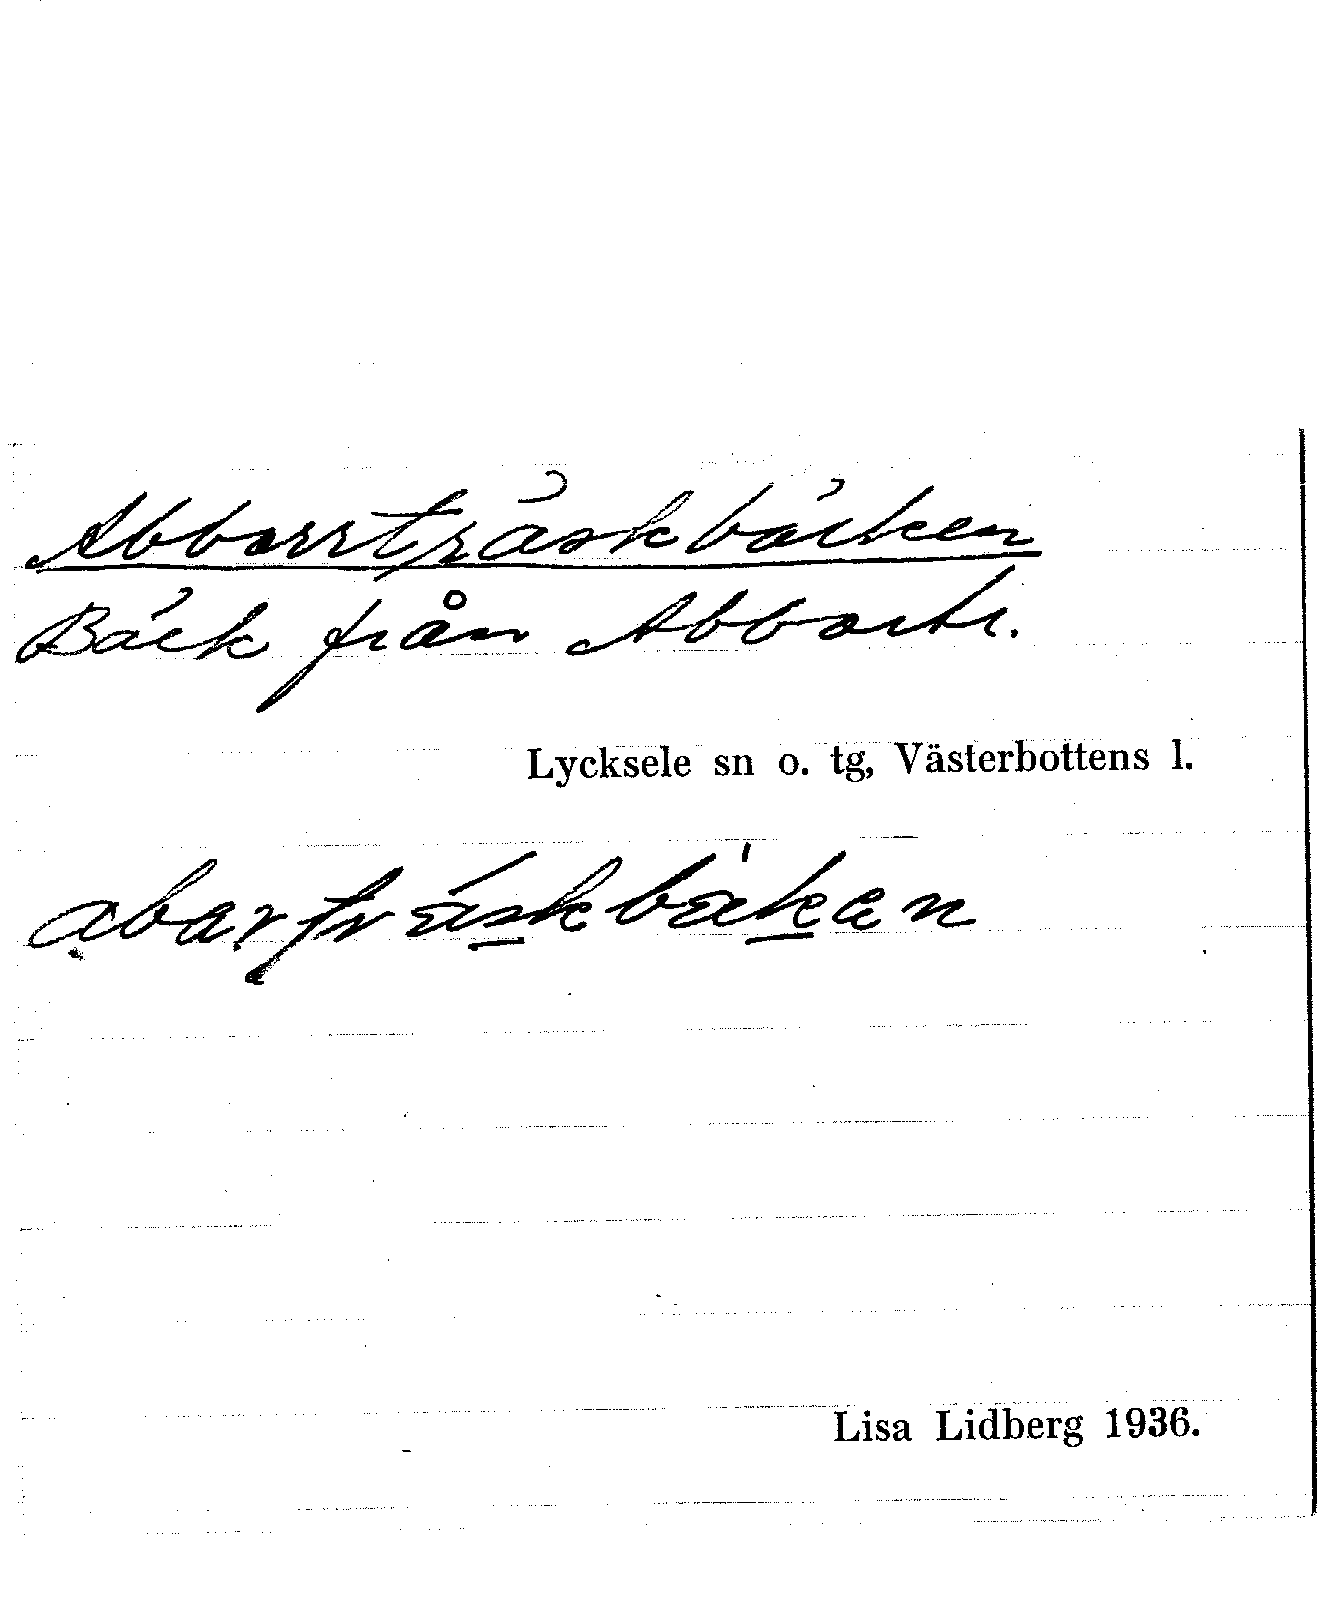 Abborrträskbäcken
Bäck från Abborrtr.
Lycksele sn o. tg, Västerbottens l.
abarträskbäkan
Lisa Lidberg 1936.